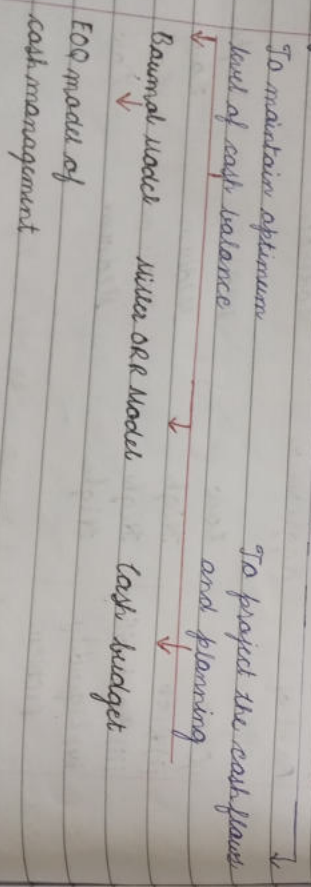 To maintain optimum
level of cash balance
To project the cashflows
and planning
Baumol Model Miller ORR Model Cash budget
EOQ model of
cash management